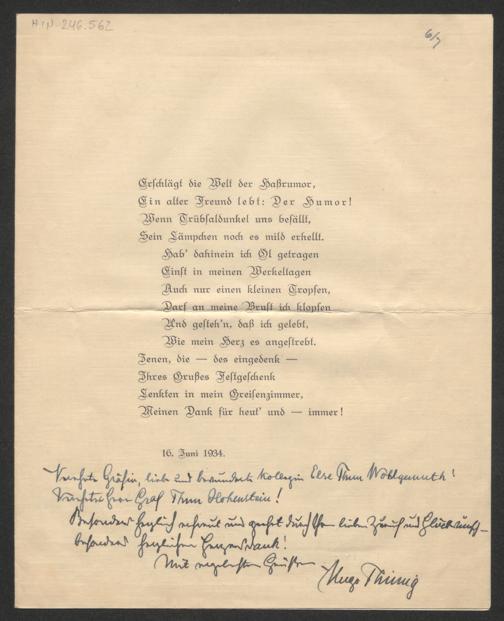 HIN-246.562
6/7
Erschlägt die Welt der Haßrumor,
Ein alter Freund lebt: Der Humor!
Wenn Trübsaldunkel uns befällt,
Sein Lämpchen noch es mild erhellt.
Hab' dahinein ich Öl getragen
Einst in meinen Werkeltagen
Auch nur einen kleinen Tropfen,
Darf an meine Brust ich klopfen
Und gesteh'n, daß ich gelebt,
Wie mein Herz es angestrebt.
Jenen, die — des eingedenk —
Ihres Grußes Festgeschenk
Lenkten in mein Greisenzimmer,
Meinen Dank für heut' und — immer!
16. Juni 1934.
Verehrte Gräfin, liebe und bewunderte Kollegin Else Thun Wohlgemuth!
Verehrter Herr Graf Thun Hohenstein!
Besonders herzlich erfreut und geehrt durch Ihren lieben Zuruf und Glückwunsch –
besonders herzlichen Herzensdank!
Mit ergebensten Grüßen
Hugo Thimig